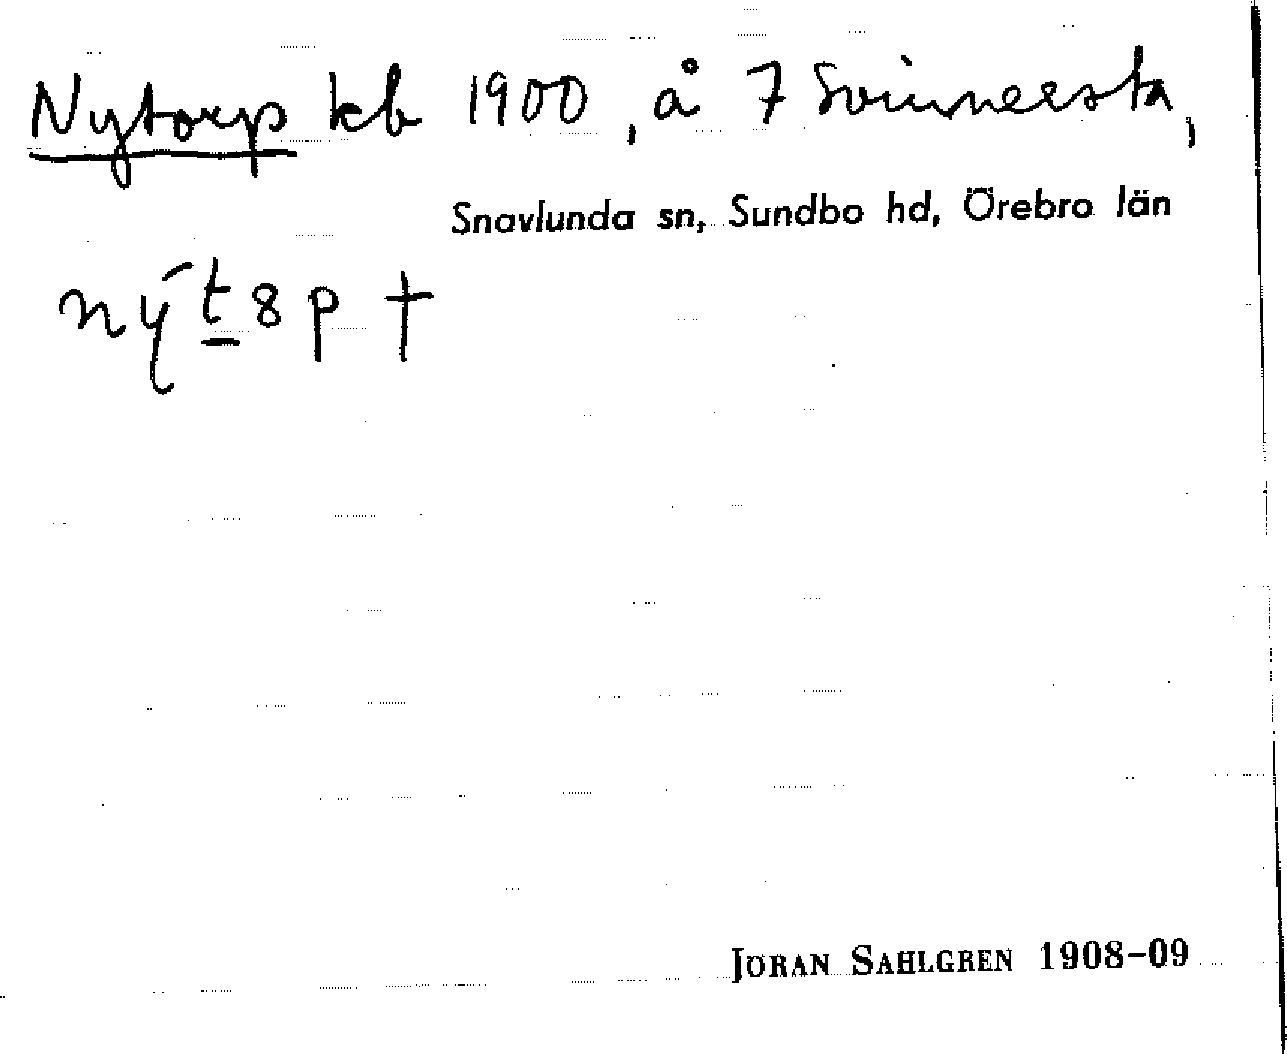 Nytorp kb 1900, å 7 Svinnersta,
Snavlunda sn, Sundbo hd, Örebro län
nýt8p †
JÖRAN SAHLGREN 1908-09